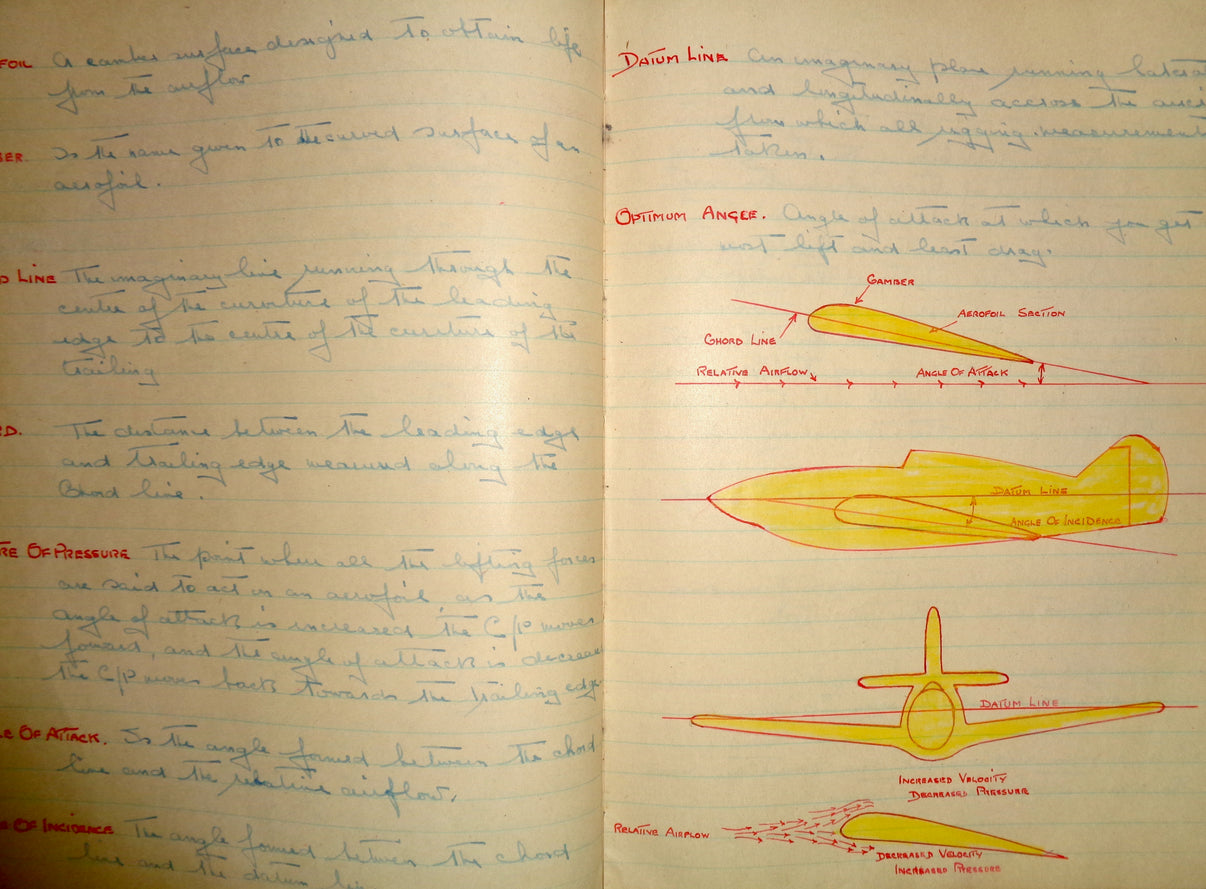 FOIL A camber surface designed to obtain life
from the airflow
BER. Is the name given to the curved surface of an
aerofoil.
D LINE The imaginary line running through the
centre of the curvature of the leading
edge to the centre of the curvature of the
trailing
RD. The distance between the leading edge
and trailing edge measured along the
Chord line.
RE OF PRESSURE The point where all the lifting forces
are said to act on an aerofoil, as the
angle of attack is increased, the C/P moves
forward, and the angle of attack is decreas
the C/P moves back towards the trailing edge.
LE OF ATTACK. Is the angle formed between the chord
line and the relative airflow.
E OF INCIDENCE The angle formed between the chord
line and the datum lin
DATUM LINE An imaginary plane running latera
and longitudinally accross the airc
from which all rigging measurement
taken.
OPTIMUM ANGLE. Angle of attack at which you get
most lift and least drag.
CAMBER
AEROFOIL SECTION
CHORD LINE
RELATIVE AIRFLOW
ANGLE OF ATTACK
DATUM LINE
ANGLE OF INCIDENCE
DATUM LINE
INCREASED VELOCITY
DECREASED PRESSURE
RELATIVE AIRFLOW
DECREASED VELOCITY
INCREASED PRESSURE